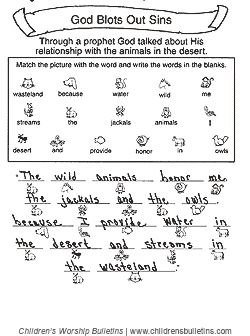 God Blots Out Sins
Through a prophet God talked about His
relationship with the animals in the desert.
Match the picture with the word and write the words in the blanks.
wasteland because water wild me
streams the jackals animals I
desert and provide honor in owls
The wild animals honor me
the jackals and the owls
because I provide water in
the desert and streams in
the wasteland
Children's Worship Bulletins | www.childrensbulletins.com